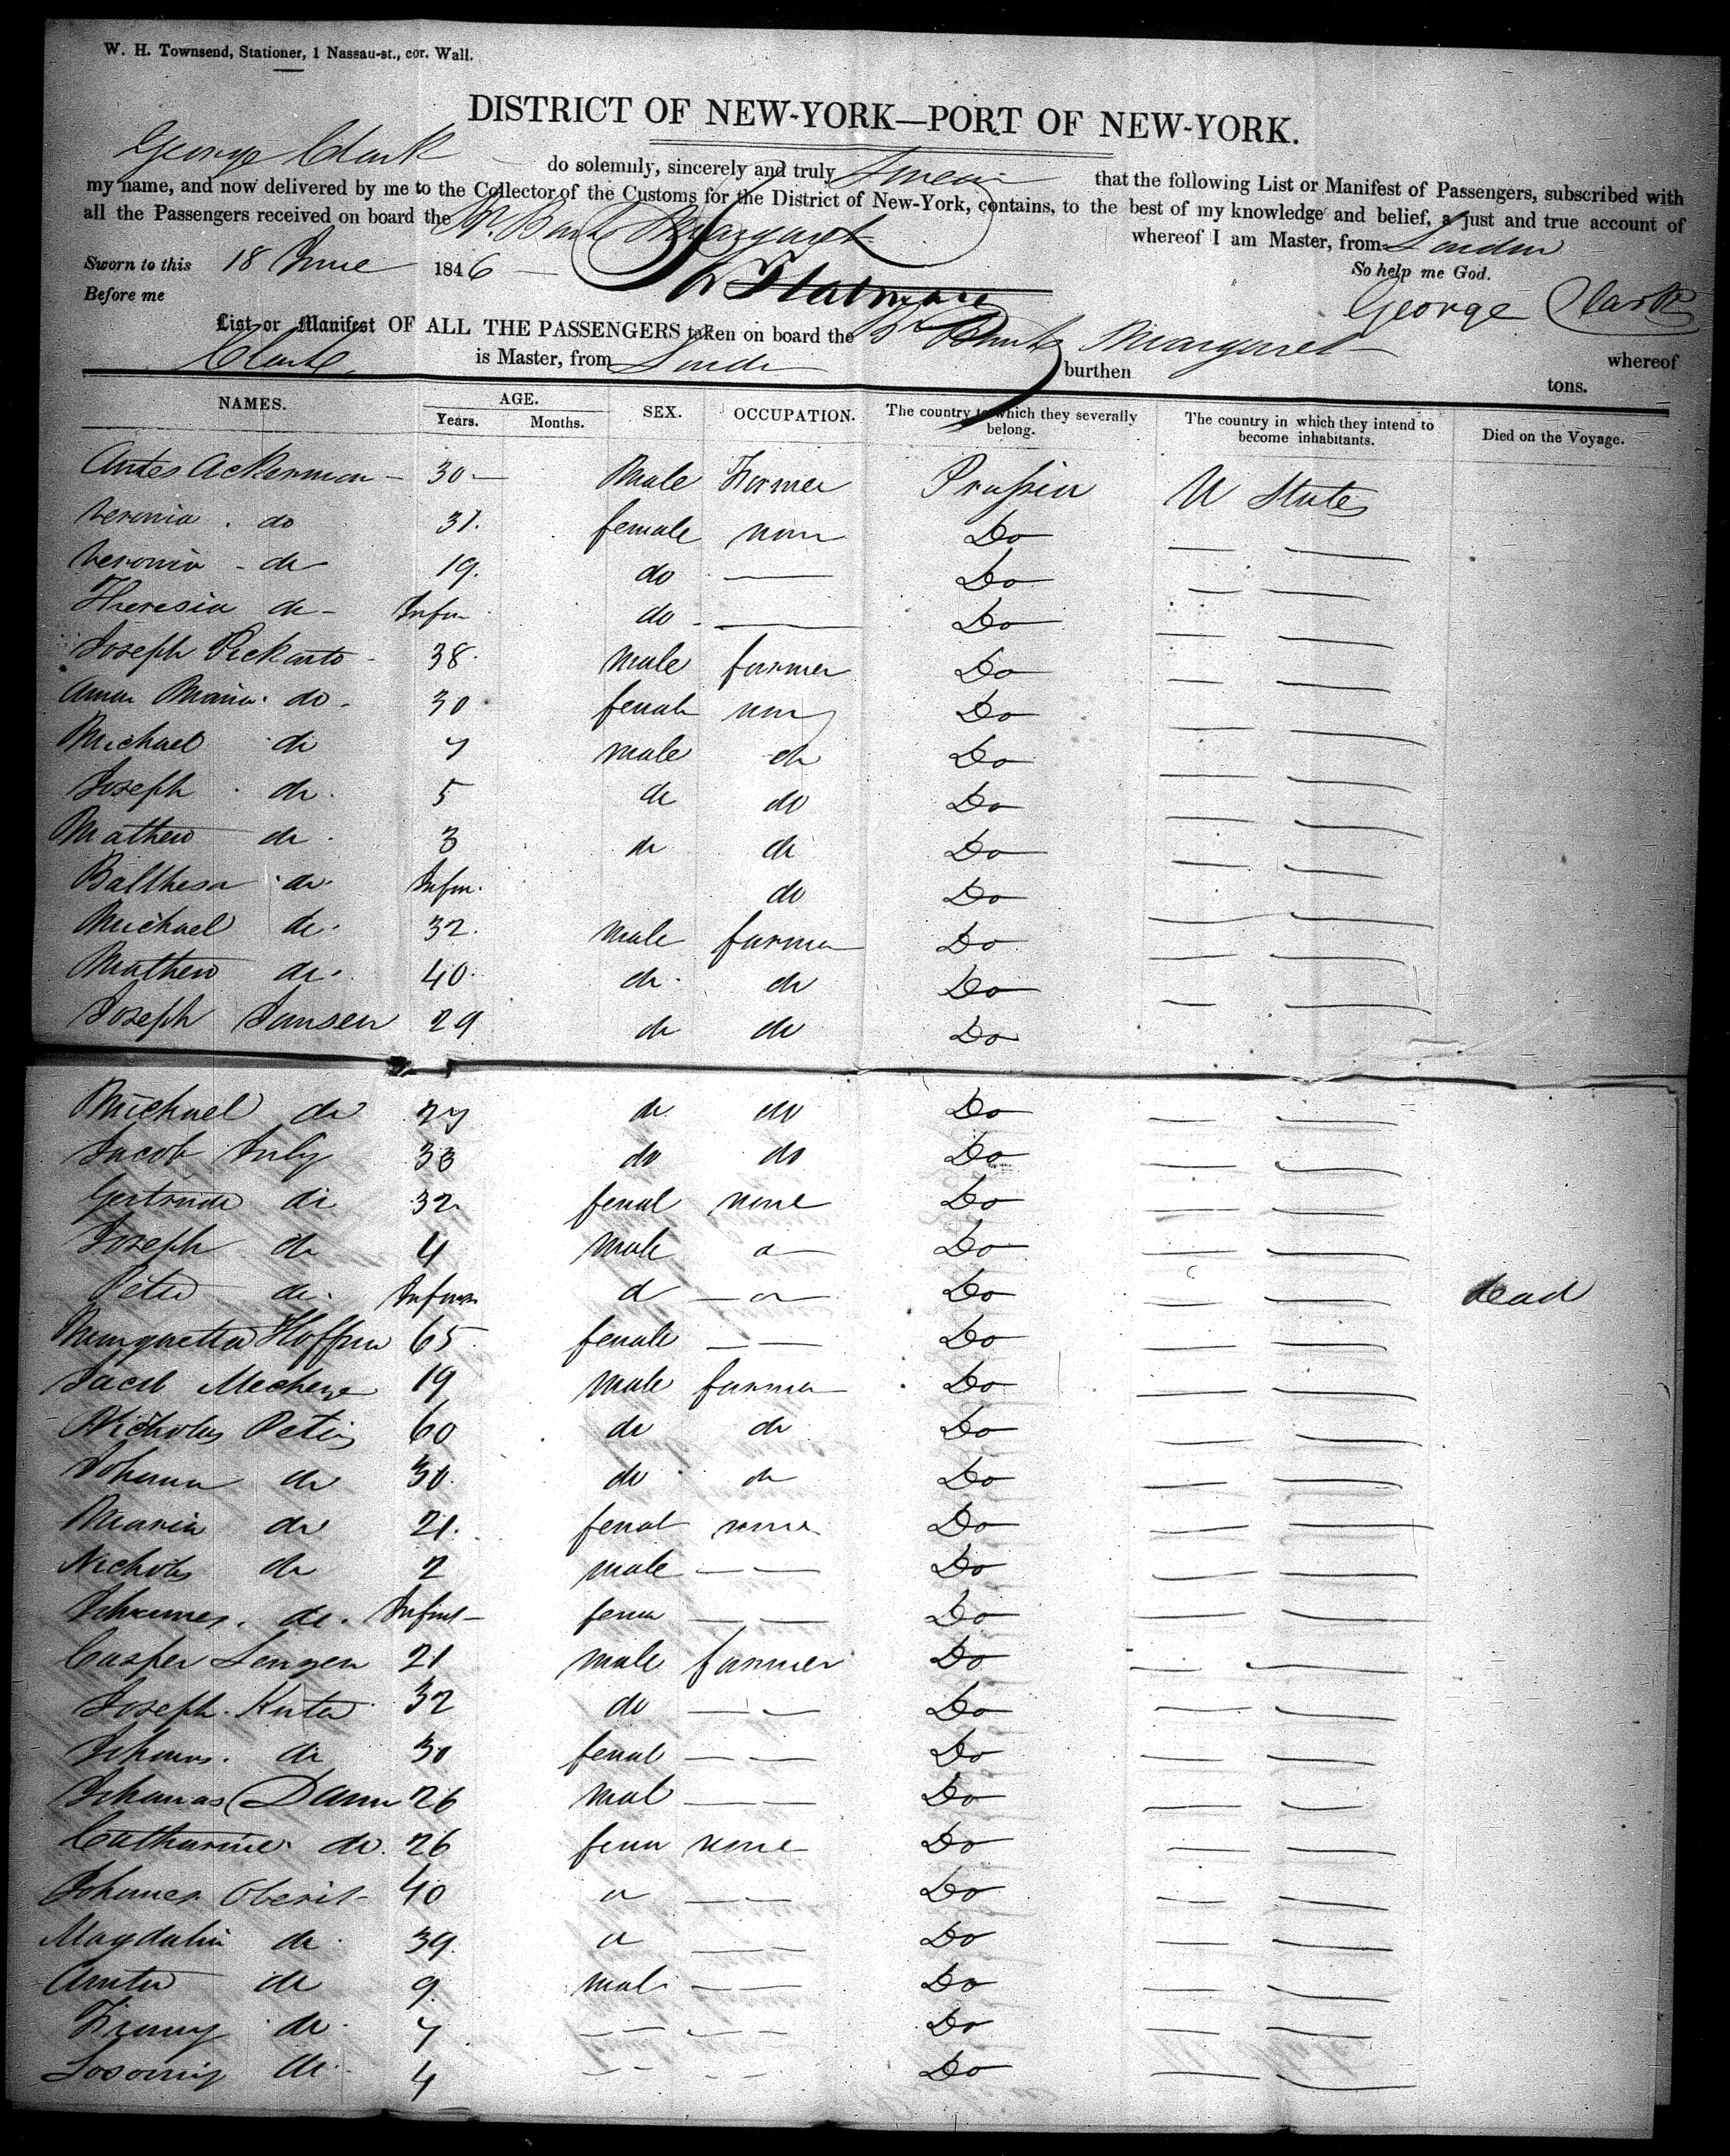 W. H. Townsend, Stationer, 1 Nassau-st., cor. Wall.
DISTRICT OF NEW-YORK—PORT OF NEW-YORK.
George Clark do solemnly, sincerely and truly Swear that the following List or Manifest of Passengers, subscribed with
my name, and now delivered by me to the Collector of the Customs for the District of New-York, contains, to the best of my knowledge and belief, a just and true account of
all the Passengers received on board the Br. Bark Margaret whereof I am Master, from London
Sworn to this 18 June 1846 So help me God.
Before me George Clark
List or Manifest OF ALL THE PASSENGERS taken on board the Br Bark Margaret whereof
Clark is Master, from Londn burthen tons.
NAMES. AGE. Years. Months. SEX. OCCUPATION. The country to which they severally belong. The country in which they intend to become inhabitants. Died on the Voyage.
Ackerman 30 Male Farmer Prussia U States
Veronia do 31 female non Do
Veronia do 19 do Do
Theresia do Infan do Do
Joseph 38 Male farmer Do
Anna Maria do 30 female non Do
Michael do 7 male do Do
Joseph do 5 do do Do
Mathew do 3 do do Do
Balthesa do Infan do Do
Michael do 32 male farmer Do
Mathew do 40 do do Do
Joseph Jansen 29 do do Do
Michael do 27 do do Do
Jacob July 33 do do Do
Gertrude do 32 femal none Do
Joseph do 4 male do Do
Peter do Infan do do Do dead
Margaretta 65 female Do
Jacob 19 male farmer Do
Nicholas Petis 60 do do Do
Johann do 30 do do Do
Maria do 21 femal none Do
Nicholas do 2 male Do
Johannes do Infant fema Do
Casper Lengen 21 male farmer Do
Joseph Kuta 32 do Do
do 30 femal Do
Johanas Damm 26 mal Do
Catharine do 26 fema none Do
Johanes 40 do Do
Magdalin do 39 do Do
do 9 mal Do
do 7 Do
do 4 Do